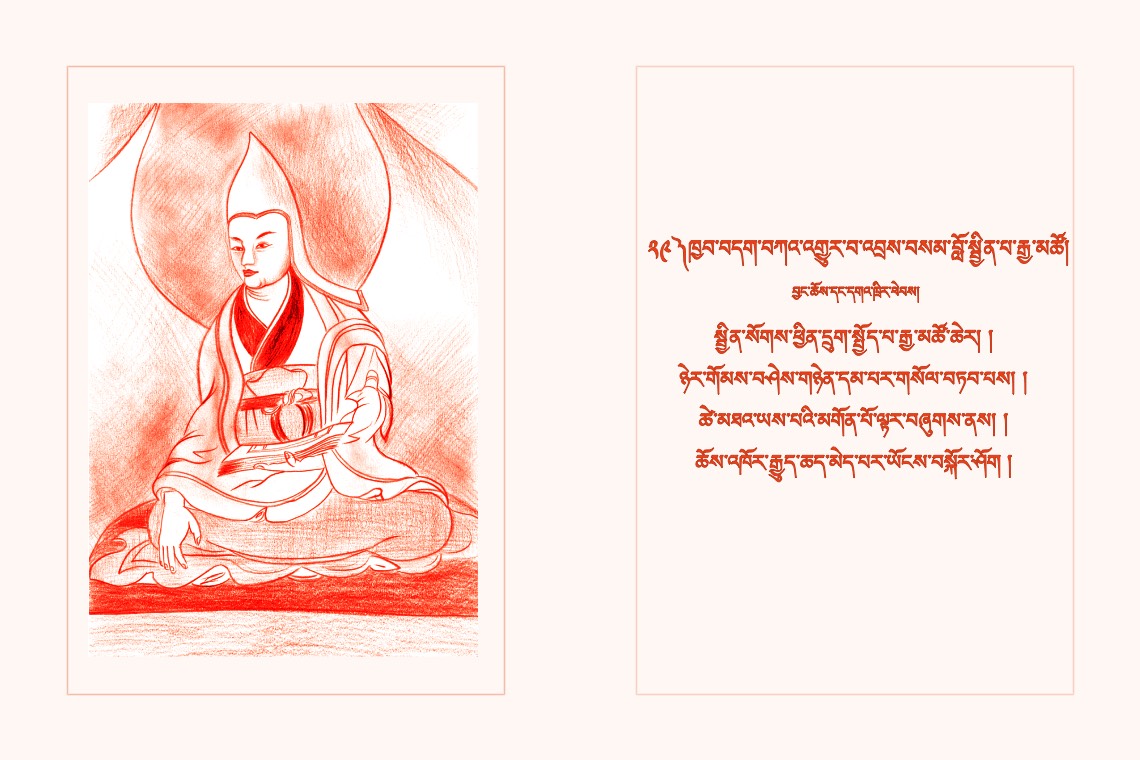 ༢༩ ༽ཁྱབ་བདག་བཀའ་འགྱུར་བ་འབྲས་བསམ་བློ་སྦྱིན་པ་རྒྱ་མཚོ།
བྱང་ཆོས་དང་དགའ་ཁྲིར་ཕེབས།
སྦྱིན་སོགས་ཕྱིན་དྲུག་སྤྱོད་པ་རྒྱ་མཚོ་ཆེར། །
ཉེར་གོམས་བཤེས་གཉེན་དམ་པར་གསོལ་བཏབ་པས། །
ཚེ་མཐའ་ཡས་པའི་མགོན་པོ་ལྟར་བཞུགས་ནས། །
ཆོས་འཁོར་རྒྱུད་ཆད་མེད་པར་ཡོངས་བསྐོར་ཤོག །